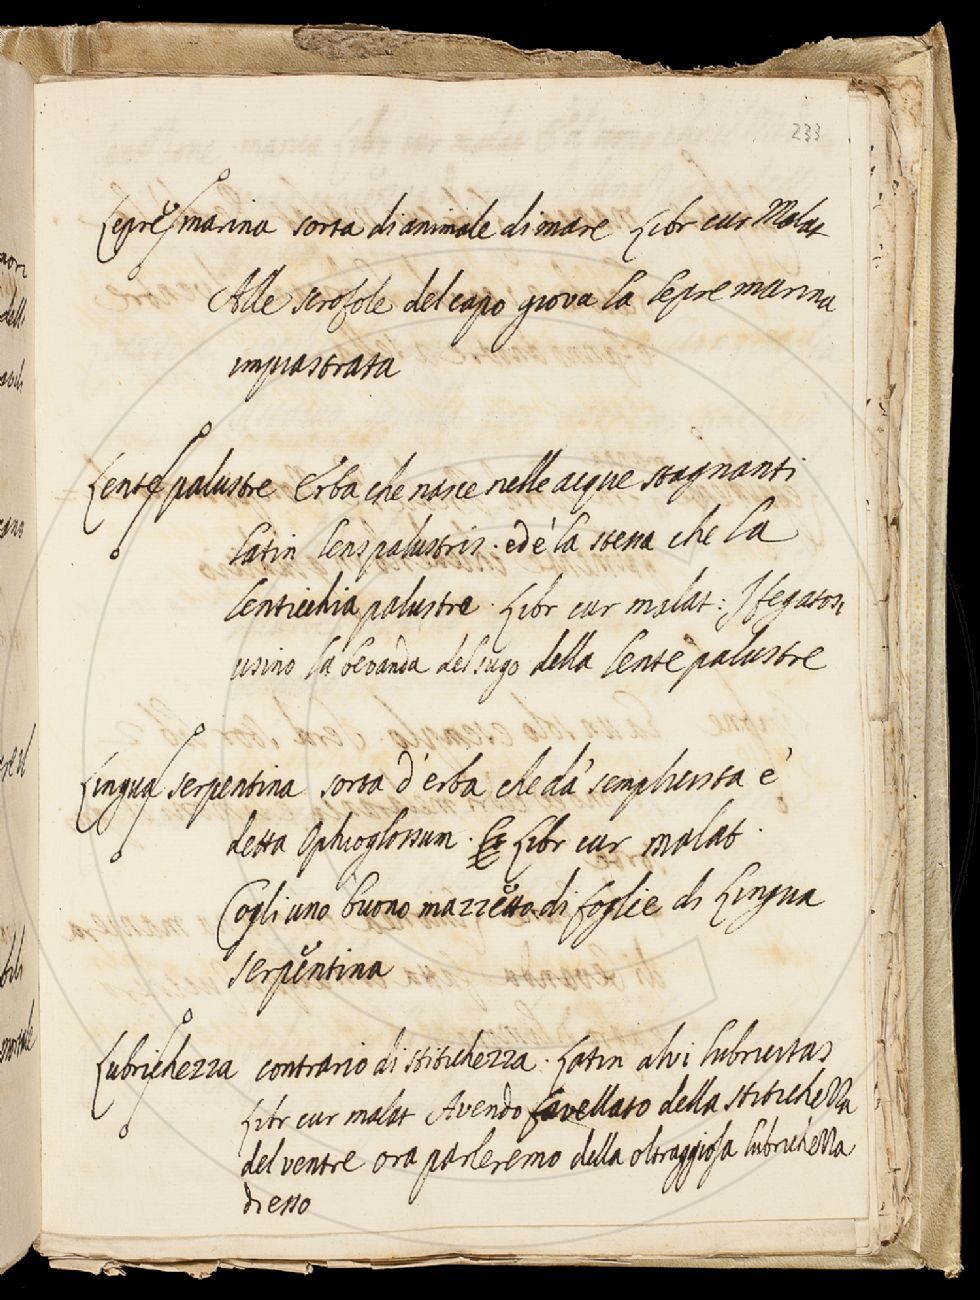 233
Lepre marina sorta di animale di mare Libr cur Malat
Alle scrofole del capo giova la lepre marina
impiastrata
Lente palustre Erba che nasce nelle acque stagnanti
latin lens palustris. ed è la stessa che la
lenticchia palustre. Libr cur malat: I fegatosi
usino la bevanda del sugo della lente palustre
Lingua serpentina sorta d'erba che da' semplicista è
detta Ophioglossum. Libr cur malat.
Cogli uno buono mazzetto di foglie di Lingua
serpentina
Lubrichezza contrario di stitichezza. Latin alvi lubricitas
Libr cur malat Avendo favellato della stitichezza
del ventre ora parleremo della oltraggiosa lubrichezza
di esso